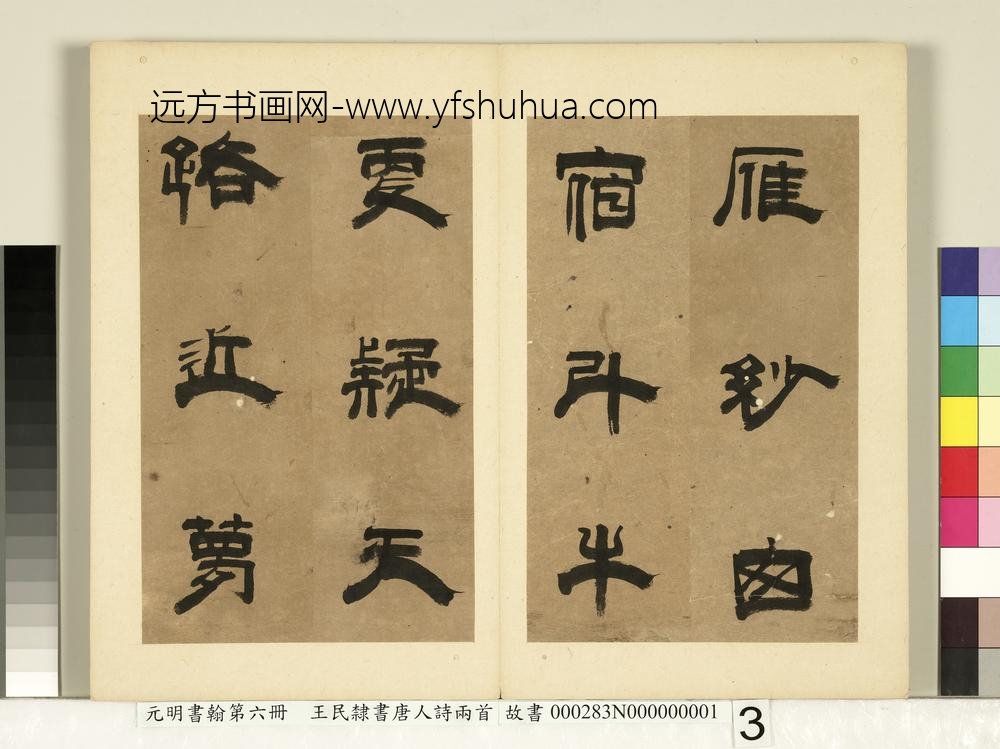 远方书画网-www.yfshuhua.com
雁紗囪
宿斗牛
更疑天
路近夢
元明書翰第六冊 王民隸書唐人詩兩首 故書 000283N000000001
3